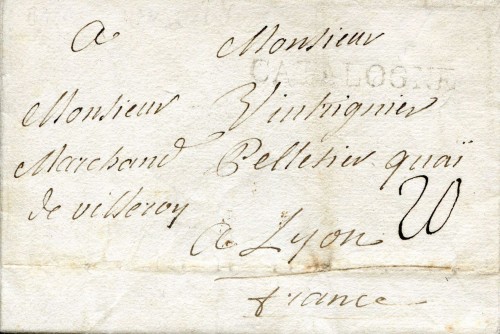 A Monsieur
CATALOGNE
Monsieur Vintrignier
Marchand Pelletier quaï
de villeroy
20
a Lyon
france